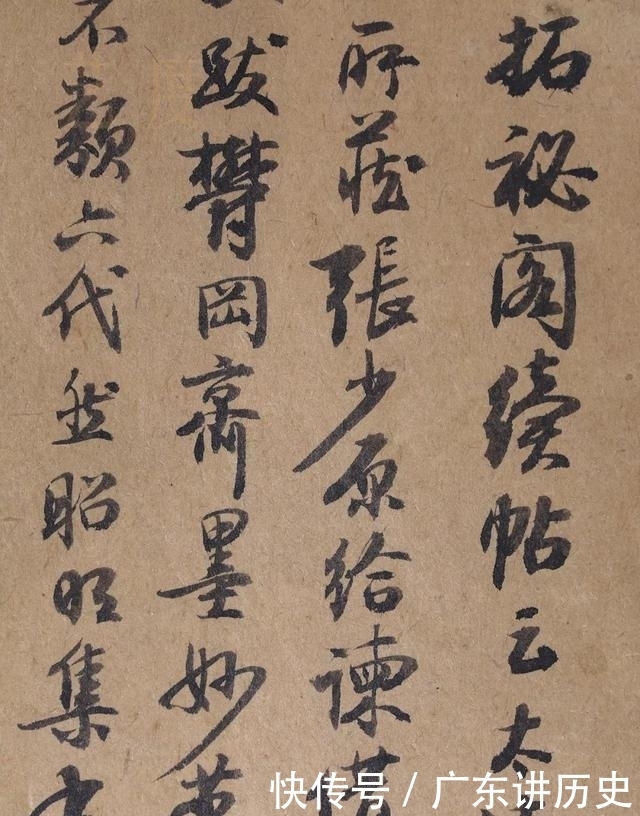 拓祕閣續帖云太
所藏張少原給諫
跋欝岡齋墨妙
不類六代然昭
集
快传号/广东讲历史